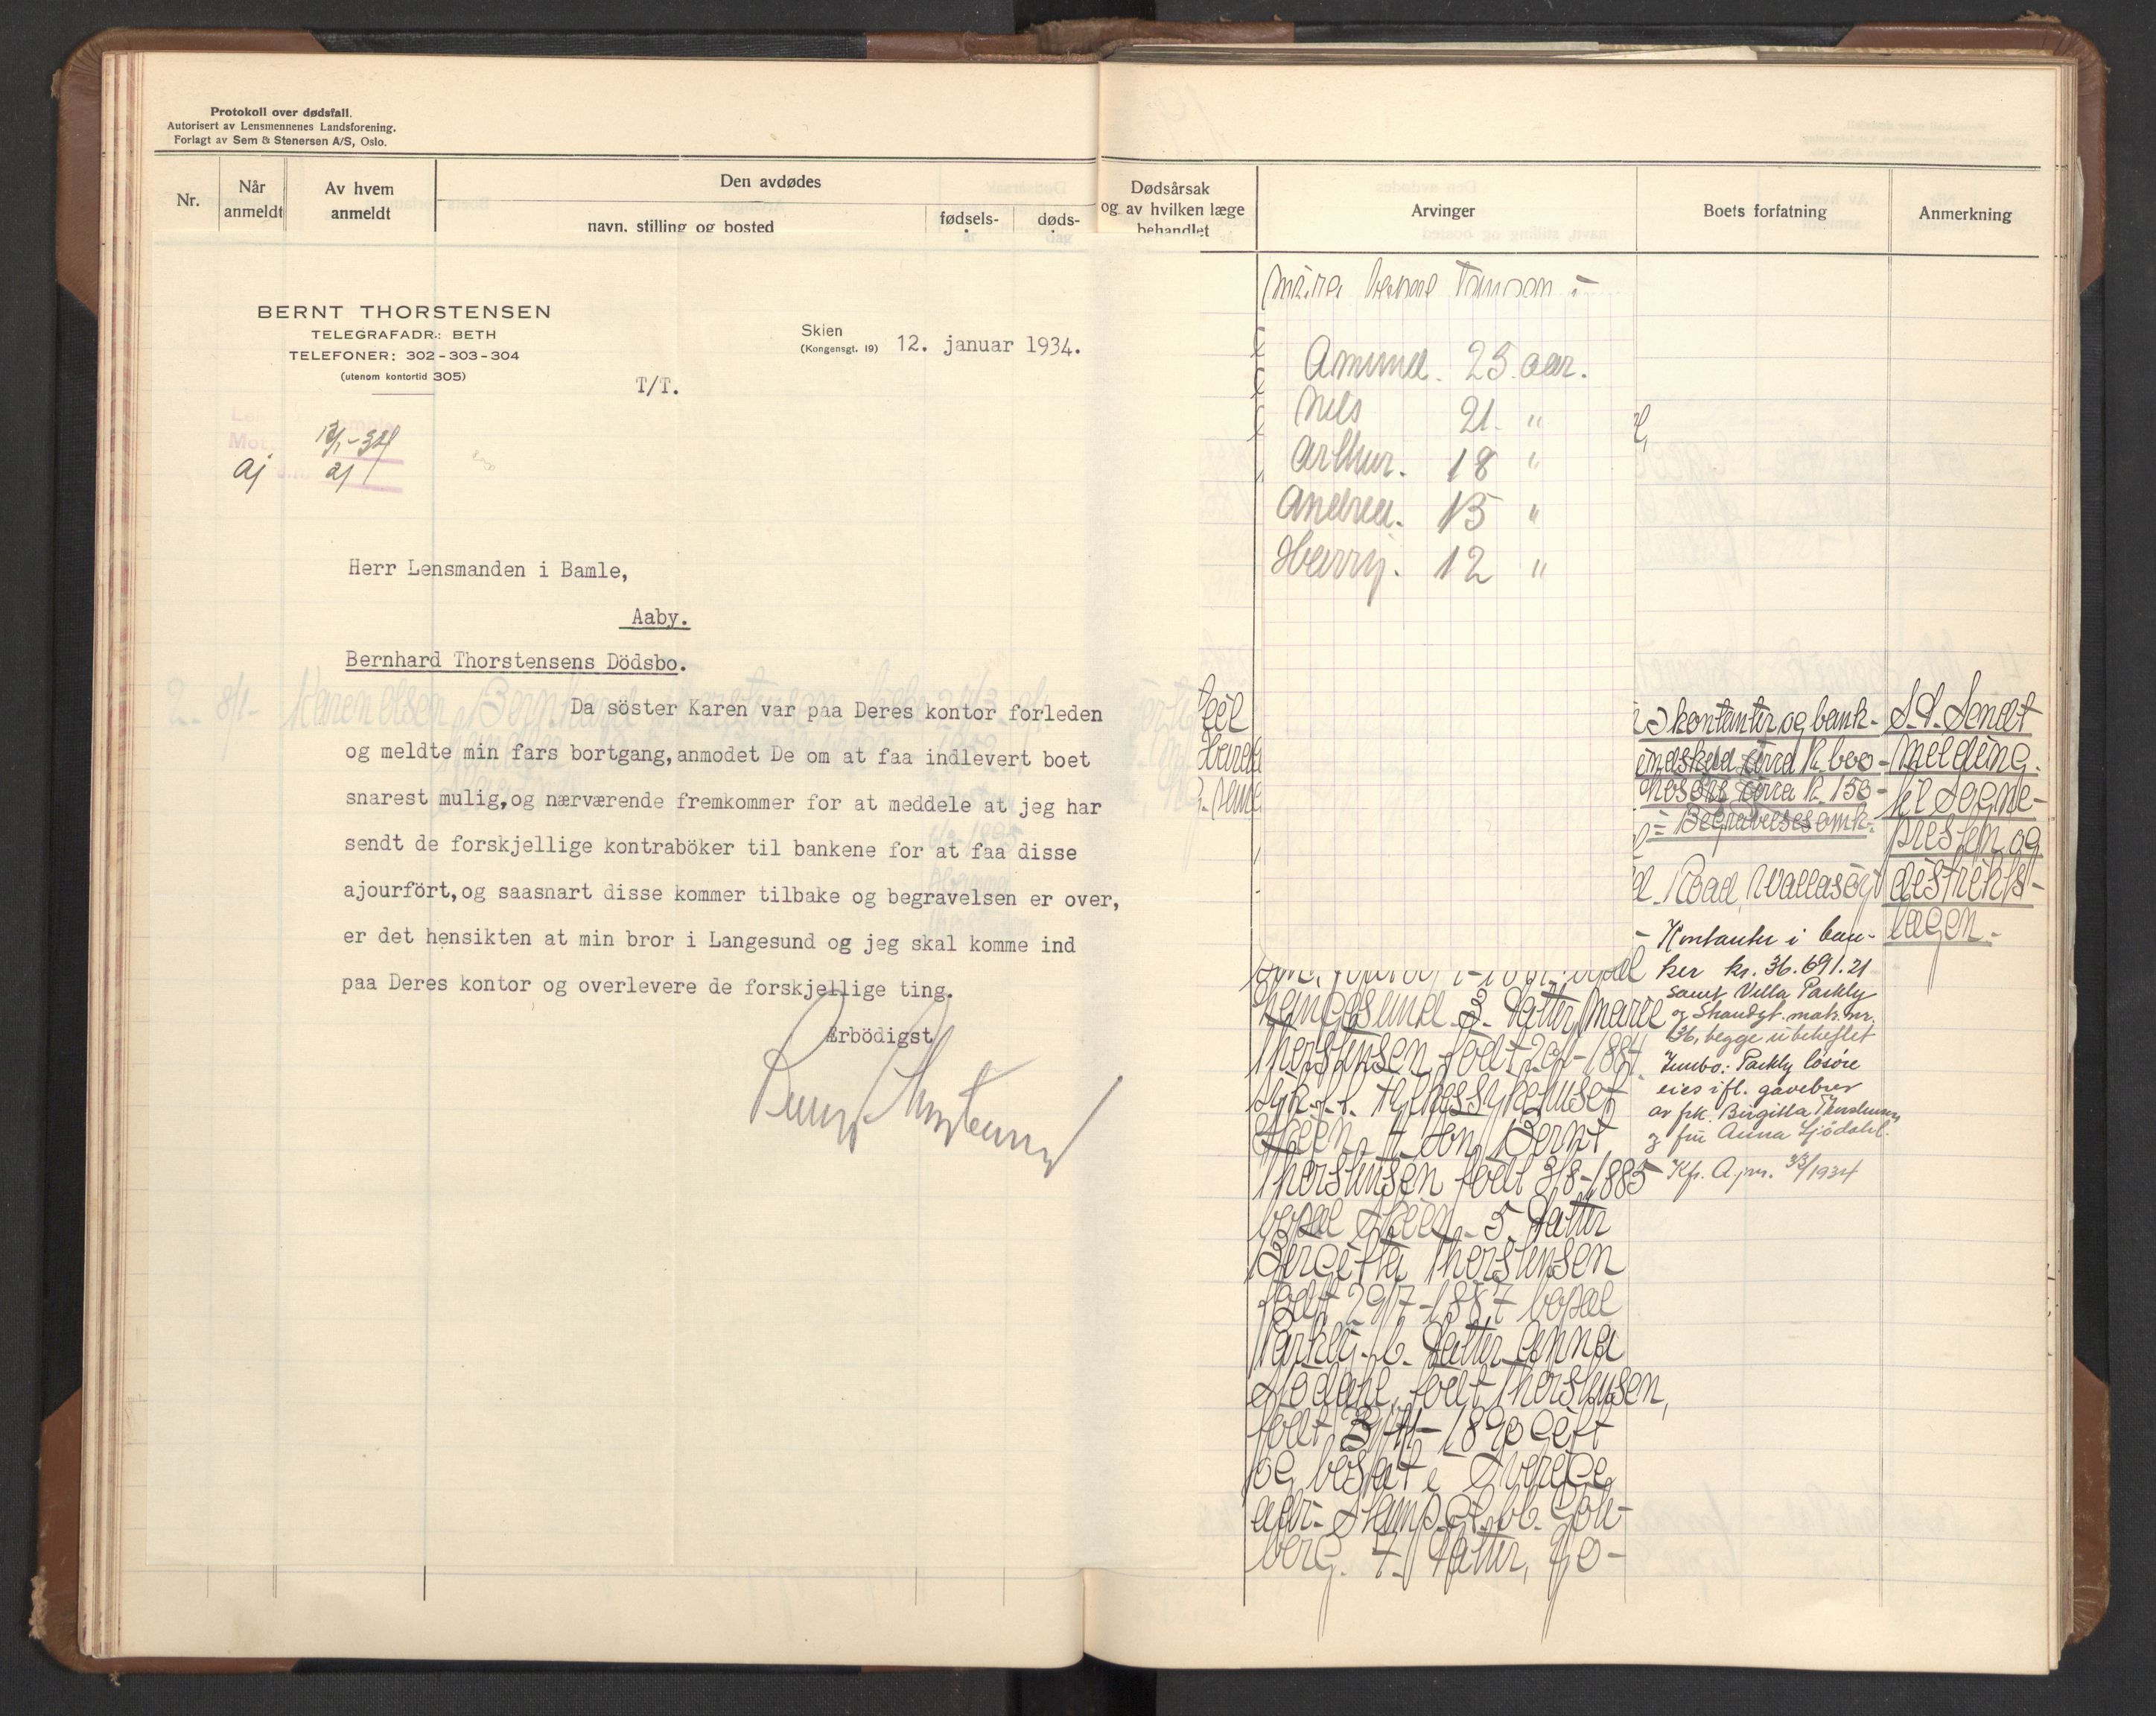 Protokoll over dødsfall.
Autorisert av Lensmennenes Landsforening.
Forlagt av Sem & Stenersen A/S, Oslo.
Nr.
Når
anmeldt
Av hvem
anmeldt
Den avdødes
navn, stilling og bosted
fødsels-
døds-
BERNT THORSTENSEN
TELEGRAFADR.: BETH
TELEFONER: 302-303-304
(utenom kontortid 305)
Skien
(Kongensgt. 19) 12. januar 1934.
T/T.
12/1-34
aj aj
Herr Lensmanden i Bamle,
Aaby.
Bernhard Thorstensens Dödsbo.
Da söster Karen var paa Deres kontor forleden
og meldte min fars bortgang, anmodet De om at faa indlevert boet
snarest mulig, og nærværende fremkommer for at meddele at jeg har
sendt de forskjellige kontraböker til bankene for at faa disse
ajourfört, og saasnart disse kommer tilbake og begravelsen er over,
er det hensikten at min bror i Langesund og jeg skal komme ind
paa Deres kontor og overlevere de forskjellige ting.
Ærbödigst
Bernt Thorstensen
2. 8/1- Karen Olsen
Dødsårsak
og av hvilken læge
behandlet
Arvinger
Boets forfatning
Anmerkning
Amund. 25 aar.
Nils 21. "
Arthur. 18 "
Andrea. 15 "
Harry. 12 "
Langesund. 3. Datter Marie
Thorstensen, født 20/1-1884.
Skien. 4. Søn Bernt
Thorstensen født 3/8-1885
bopæl Skien. 5. Datter
Bergitta Thorstensen
født 29/7-1887 bopæl
Parkly. 6. Datter Anna
Sjödahl, født Thorstensen,
født 3/11-1890 Gift
og bosat i Sverige
adr. Skamp. Gl. 6b. Gøte-
berg. 7. Datter,
kontanter og bank-
indskud circa K. 600-
circa K. 150-
Begravelsesomk.
Road, Wallasey
Kontanter i ban-
ker kr. 36.691.21
samt Villa Parkly
og Strandgt. matr. nr.
36, begge ubeheftet
Innbo: Parkly løsøre
eies ifl. gavebrev
av frk. Birgitta Thorstensen
og fru Anna Sjödahl.
S.D. Sendt
melding
til Sogne-
presten og
distrikts-
lægen.